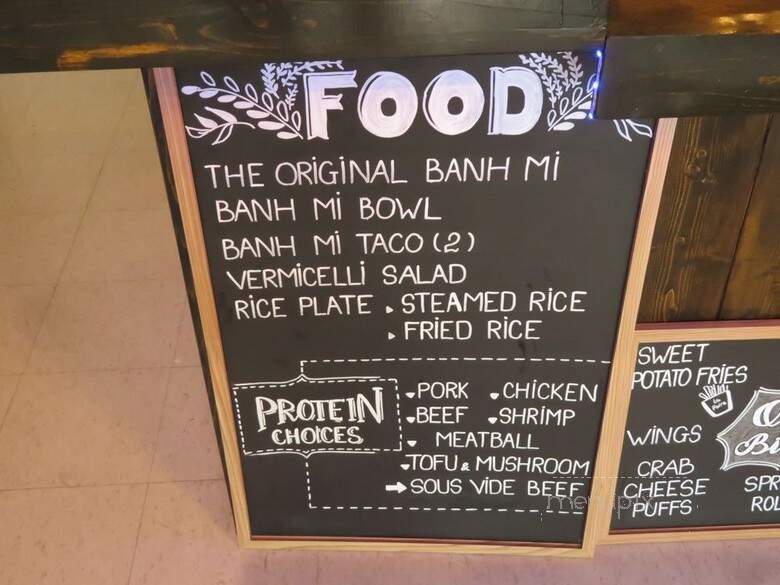 FOOD
THE ORIGINAL BANH MI
BANH MI BOWL
BANH MI TACO (2)
VERMICELLI SALAD
RICE PLATE • STEAMED RICE
• FRIED RICE
PROTEIN
CHOICES
PORK CHICKEN
BEEF SHRIMP
MEATBALL
TOFU & MUSHROOM
SOUS VIDE BEEF
SWEET
POTATO FRIES
WINGS
CRAB
CHEESE
PUFFS